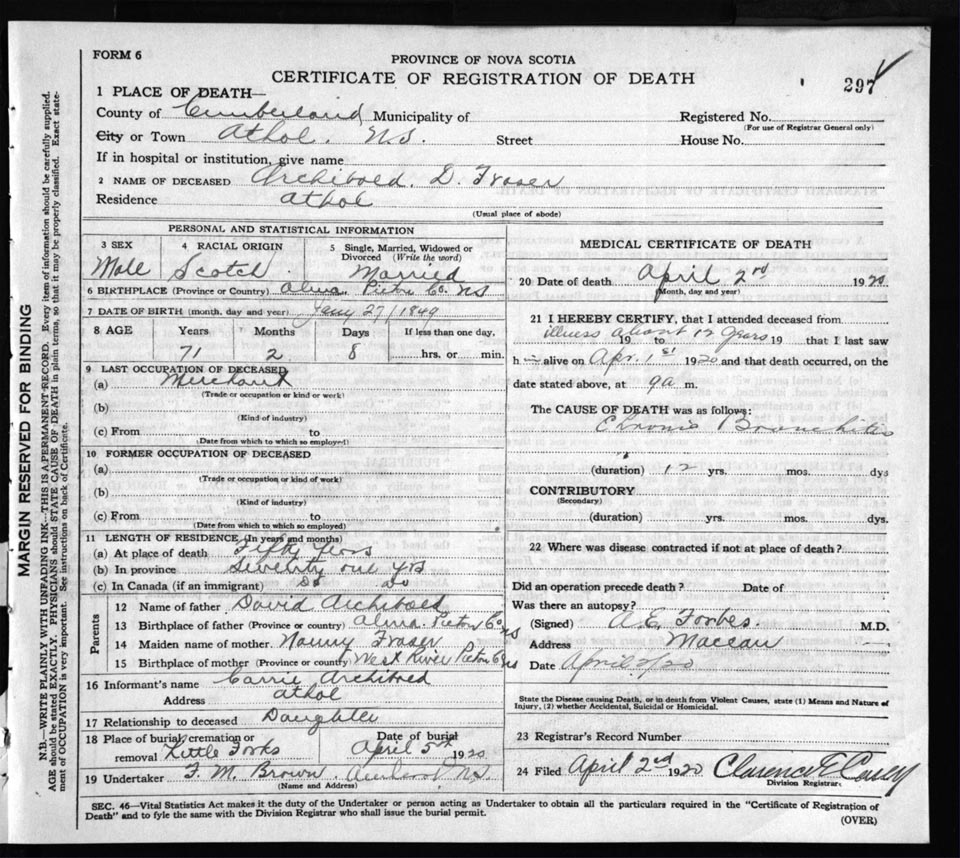 FORM 6
PROVINCE OF NOVA SCOTIA
CERTIFICATE OF REGISTRATION OF DEATH
297
1 PLACE OF DEATH—
County of Cumberland Municipality of Registered No.
(For use of Registrar General only)
City or Town Athol. N.S. Street House No.
If in hospital or institution, give name
2 NAME OF DECEASED Archibald. D. Fraser
Residence Athol
(Usual place of abode)
PERSONAL AND STATISTICAL INFORMATION
3 SEX 4 RACIAL ORIGIN 5 Single, Married, Widowed or Divorced (Write the word)
Male Scotch Married
6 BIRTHPLACE (Province or Country) Alma. Pictou Co. NS
7 DATE OF BIRTH (month, day and year) Jany 27/1849
8 AGE Years Months Days If less than one day,
71 2 8 hrs. or min.
9 LAST OCCUPATION OF DECEASED
(a) Merchant
(Trade or occupation or kind or work)
(b)
(Kind of industry)
(c) From to
(Date from which to which so employed)
10 FORMER OCCUPATION OF DECEASED
(a)
(Trade or occupation or kind of work)
(b)
(Kind of industry)
(c) From to
(Date from which to which so employed)
11 LENGTH OF RESIDENCE (In years and months)
(a) At place of death Fifty Years
(b) In province Seventy one yrs
(c) In Canada (if an immigrant) Do Do
Parents
12 Name of father David Archibald
13 Birthplace of father (Province or country) Alma. Pictou Co NS
14 Maiden name of mother Nanny Fraser
15 Birthplace of mother (Province or country) West River Pictou Co NS
16 Informant's name Carrie Archibald
Address Athol
17 Relationship to deceased Daughter
18 Place of burial, cremation or removal Little Forks Date of burial April 5th 1920
19 Undertaker F. M. Brown. Amherst N.S.
(Name and Address)
MEDICAL CERTIFICATE OF DEATH
20 Date of death April 2nd 1920
(Month, day and year)
21 I HEREBY CERTIFY, that I attended deceased from
illness about 12 years 19 to 19 that I last saw
h alive on Apr. 1st 1920 and that death occurred, on the
date stated above, at 9 a m.
The CAUSE OF DEATH was as follows:
Chronic Bronchitis
(duration) 12 yrs. mos. dys
CONTRIBUTORY
(Secondary)
(duration) yrs. mos. dys.
22 Where was disease contracted if not at place of death?
Did an operation precede death? Date of
Was there an autopsy?
(Signed) A. E. Forbes M.D.
Address Maccan
Date April 2/20
State the Disease causing Death, or in death from Violent Causes, state (1) Means and Nature of Injury, (2) whether Accidental, Suicidal or Homicidal.
23 Registrar's Record Number
24 Filed April 2nd 1920 Clarence E
Division Registrar
SEC. 46—Vital Statistics Act makes it the duty of the Undertaker or person acting as Undertaker to obtain all the particulars required in the "Certificate of Registration of
Death" and to fyle the same with the Division Registrar who shall issue the burial permit.
(OVER)
MARGIN RESERVED FOR BINDING
N.B.—WRITE PLAINLY WITH UNFADING INK—THIS IS A PERMANENT RECORD. Every item of information should be carefully supplied.
AGE should be stated EXACTLY. PHYSICIANS should STATE CAUSE OF DEATH in plain terms, so that it may be properly classified. Exact state-
ment of OCCUPATION is very important. See instructions on back of Certificate.